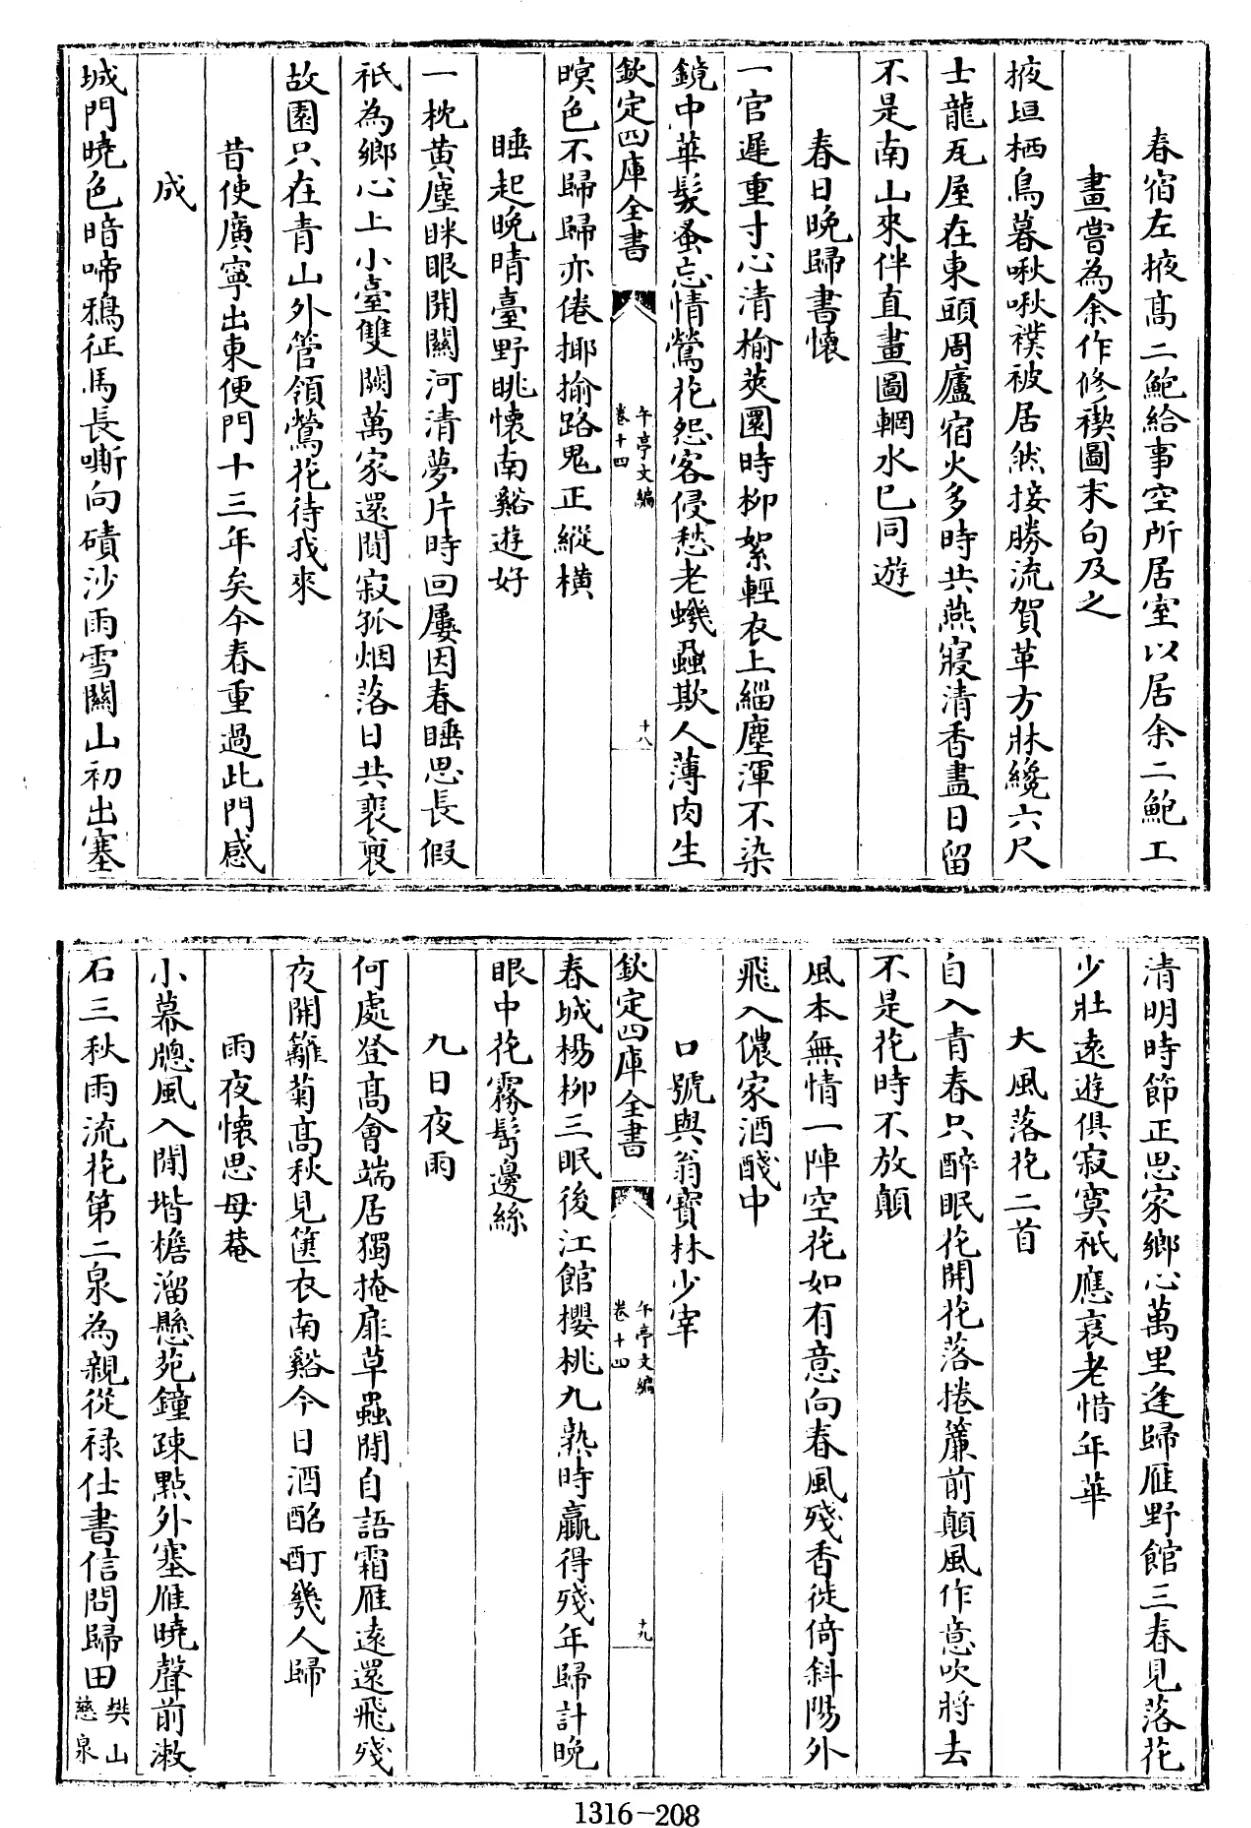 春宿左掖髙二鮑給事空所居室以居余二鮑工
畫嘗為余作修禊圖末句及之
掖垣栖鳥暮啾啾襆被居然接勝流賀革方牀纔六尺
士龍瓦屋在東頭周廬宿火多時共燕寢清香盡日留
不是南山來伴直畫圖輞水已同遊
春日晚歸書懷
一官遲重寸心清榆莢園時柳絮輕衣上緇塵渾不染
鏡中華髮蚤忘情鶯花怨客侵愁老蟣蝨欺人薄肉生
欽定四庫全書
午亭文編
卷十四
十八
暝色不歸歸亦倦揶揄路鬼正縱横
睡起晚晴臺野眺懷南谿遊好
一枕黄塵眯眼開關河清夢片時回屢因春睡思長假
祇為鄉心上小臺雙闕萬家還閴寂孤烟落日共裴裒
故園只在青山外管領鶯花待我來
昔使廣寧出東便門十三年矣今春重過此門感
成
城門曉色暗啼鴉征馬長嘶向磧沙雨雪關山初出塞
清明時節正思家鄉心萬里逢歸雁野館三春見落花
少壯遠遊俱寂寞祇應衰老惜年華
大風落花二首
自入青春只醉眠花開花落捲簾前顛風作意吹將去
不是花時不放顛
風本無情一陣空花如有意向春風殘香徙倚斜陽外
飛入儂家酒醆中
口號與翁寳林少宰
欽定四庫全書
午亭文編
卷十四
十九
春城楊柳三眠後江館櫻桃九熟時贏得殘年歸計晚
眼中花霧鬂邊絲
九日夜雨
何處登髙會端居獨掩扉草蟲閒自語霜雁遠還飛殘
夜開籬菊髙秋見篋衣南谿今日酒酩酊幾人歸
雨夜懐思母菴
小幕牕風入閒堦檐溜懸苑鐘疎點外塞雁曉聲前漱
石三秋雨流花第二泉為親從禄仕書信問歸田
樊山
慈泉
1316-208